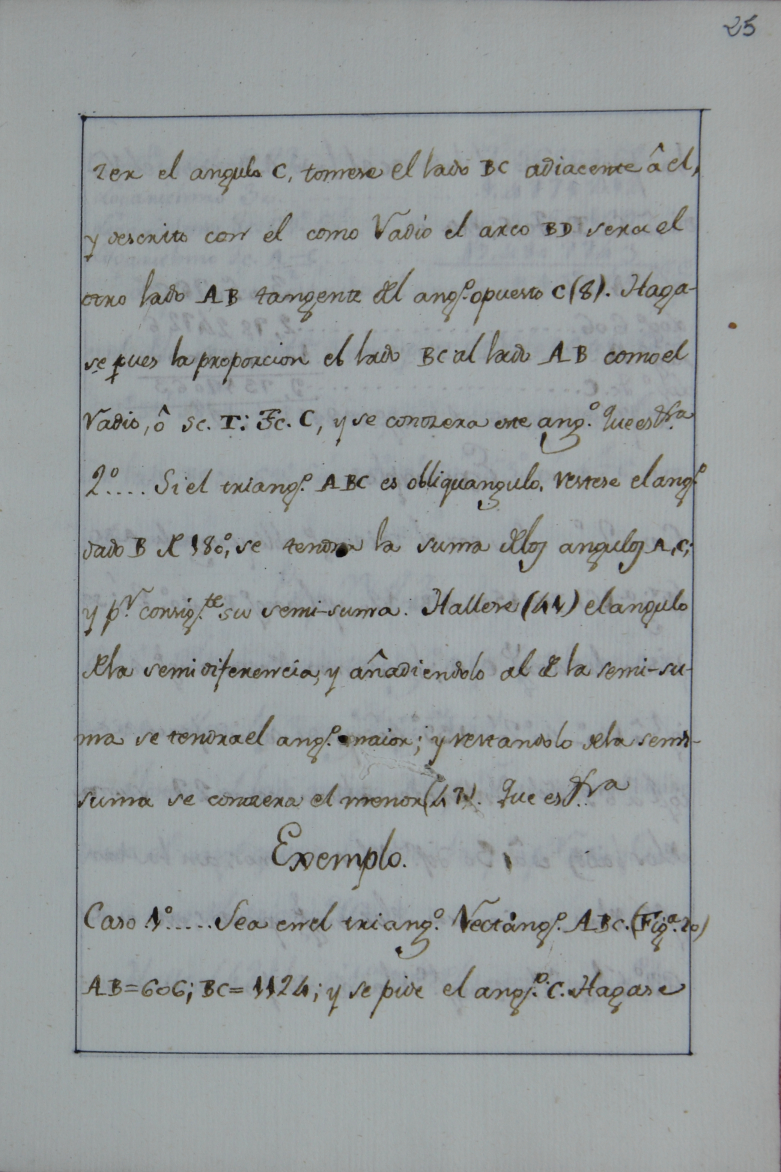 25
zer el angulo C, tomese el lado BC adiacente â el,
y descrito con el como Radio el arco BD sera el
otro lado AB tangente del angº. opuesto C (8). Haga-
se pues la proporcion el lado BC al lado AB como el
Radio, ô Sc. T: Tc. C, y se conozera este angº. Que es
2º.... Si el triangº. ABC es obliquangulo, restese el angº
dado B de 180º, se tendra la suma de los angulos A, C;
y pr. consigte. su semi-suma. Hallese (44) el angulo
de la semidiferencia, y añadiendolo al de la semi-su-
ma se tendra el angº. maior; y restandolo de la semi-
suma se conozera el menor (47). Que es
Exemplo.
Caso 1º..... Sea en el triangº. Rectangº. ABC. (Figª. 20)
AB=606; BC=1124; y se pide el angº. C. Hagase